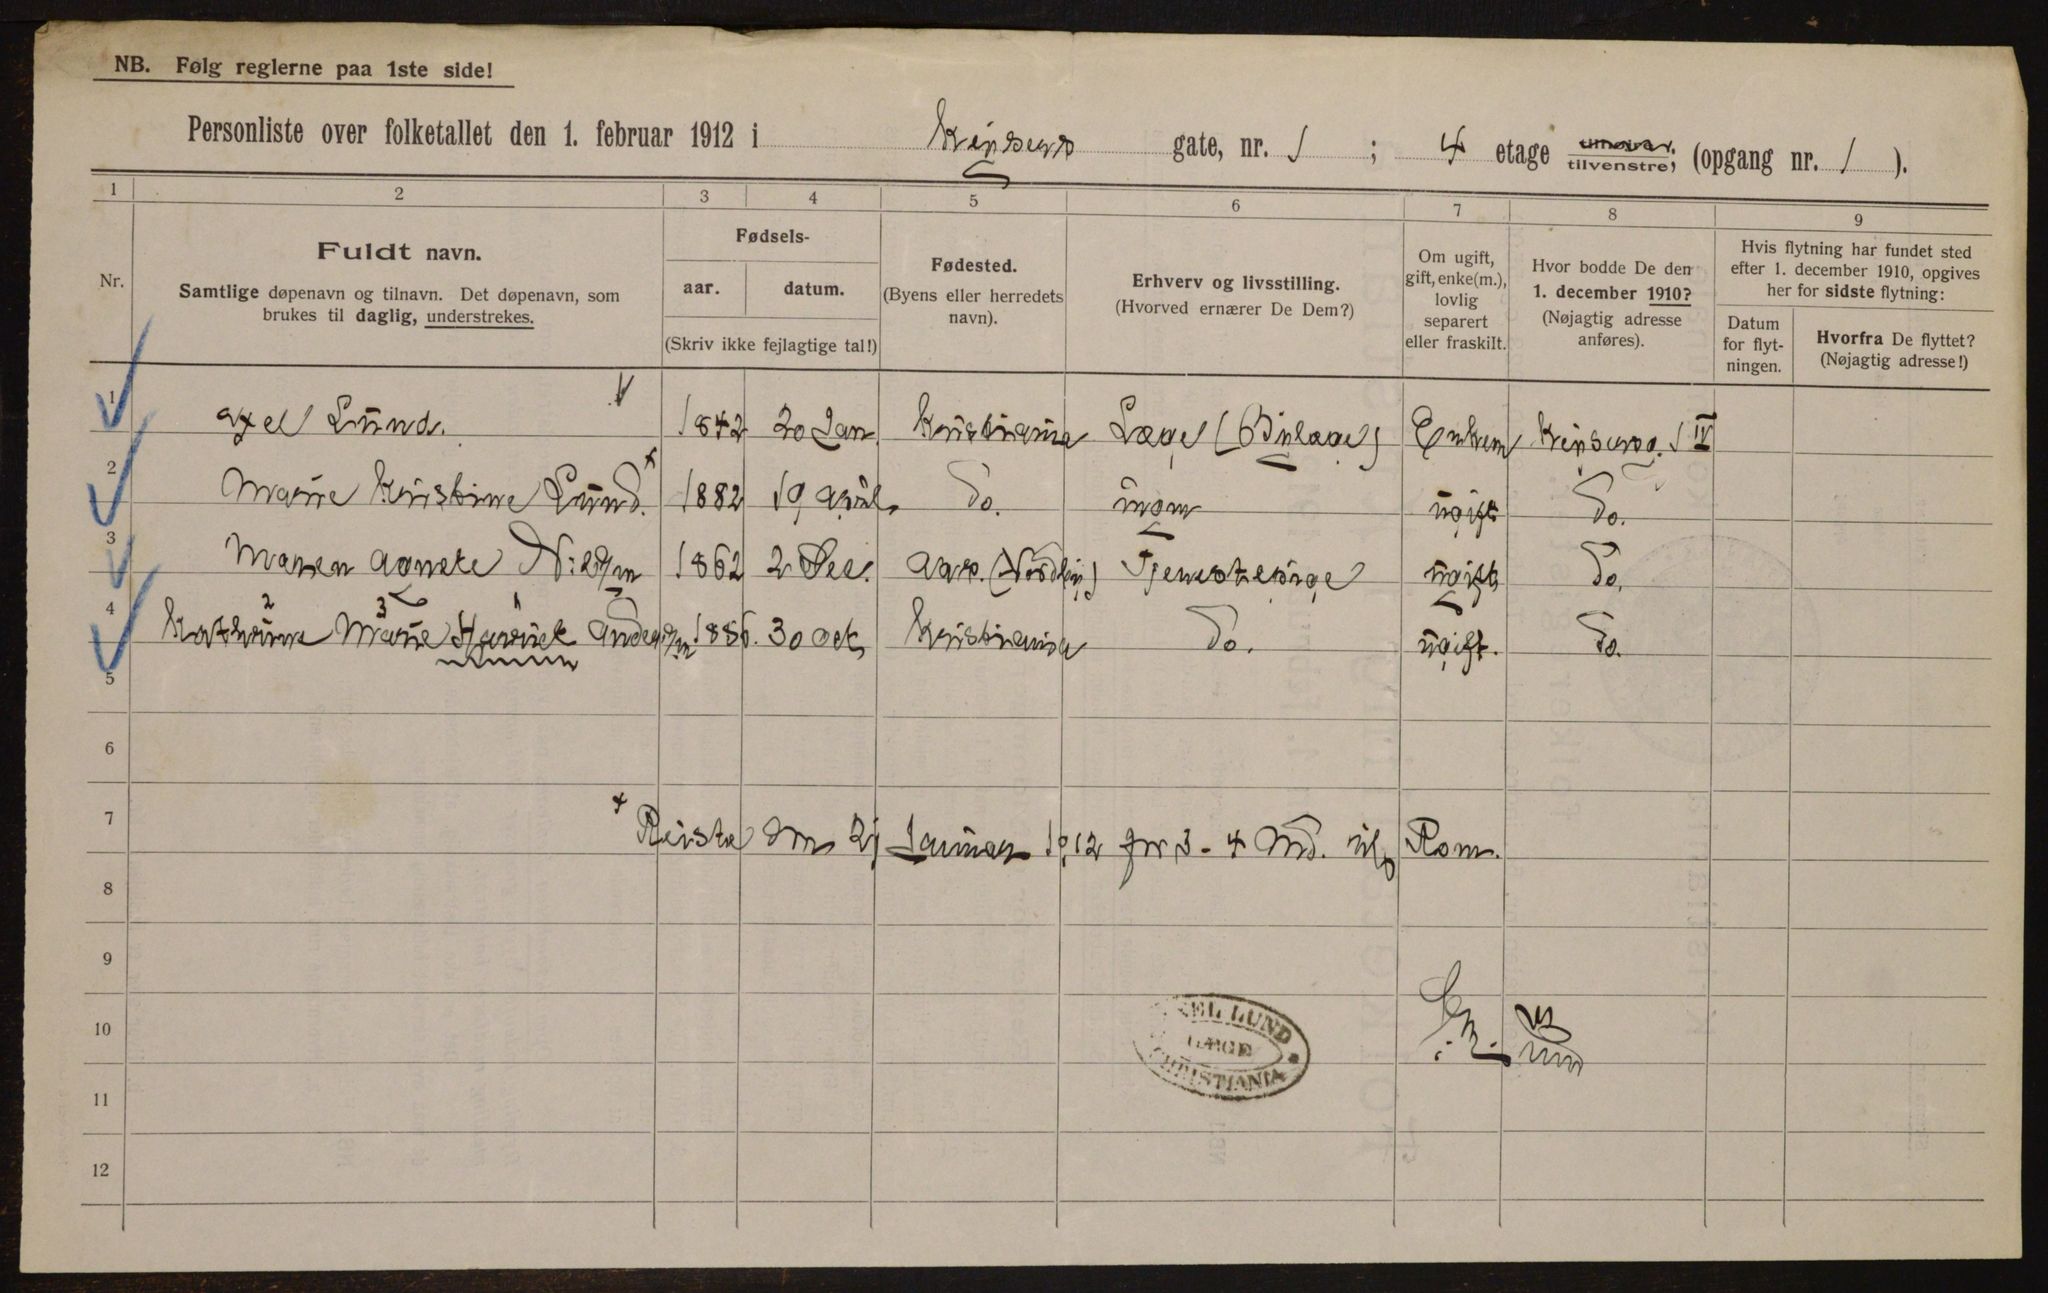 NB. Følg reglerne paa 1ste side!
Personliste over folketallet den 1. februar 1912 i Keysers gate, nr. 1 ; 4 etage tilvenstre, (opgang nr. 1 ).
1 2 3 4 5 6 7 8 9
Nr.
Fuldt navn.
Samtlige døpenavn og tilnavn. Det døpenavn, som
brukes til daglig, understrekes.
Fødsels-
aar. datum.
(Skriv ikke fejlagtige tal!)
Fødested.
(Byens eller herredets
navn).
Erhverv og livsstilling.
(Hvorved ernærer De Dem?)
Om ugift,
gift, enke(m.),
lovlig
separert
eller fraskilt.
Hvor bodde De den
1. december 1910?
(Nøjagtig adresse
anføres).
Hvis flytning har fundet sted
efter 1. december 1910, opgives
her for sidste flytning:
Datum
for flyt-
ningen.
Hvorfra De flyttet?
(Nøjagtig adresse!)
1 Axel Lund. 1842 20 Jan. Kristiania Læge (Bylæge) Enkem Keysersg. 1 IV
2 Marie Kristine Lund. x 1882 19 april. do. ugift do.
3 Maren Agnete Nielsen 1862 2 Dec. Tjenestepige ugift do.
4 Kathrine 2 Marie 3 Harriet 1 Andersen 1886. 30 Oct. Kristiania do. ugift. do.
5
6
7 x Reiste den 21 Januar 1912 for 3-4 Md. til Rom.
8
9
10
11
12
AXEL LUND
LÆGE
CHRISTIANIA